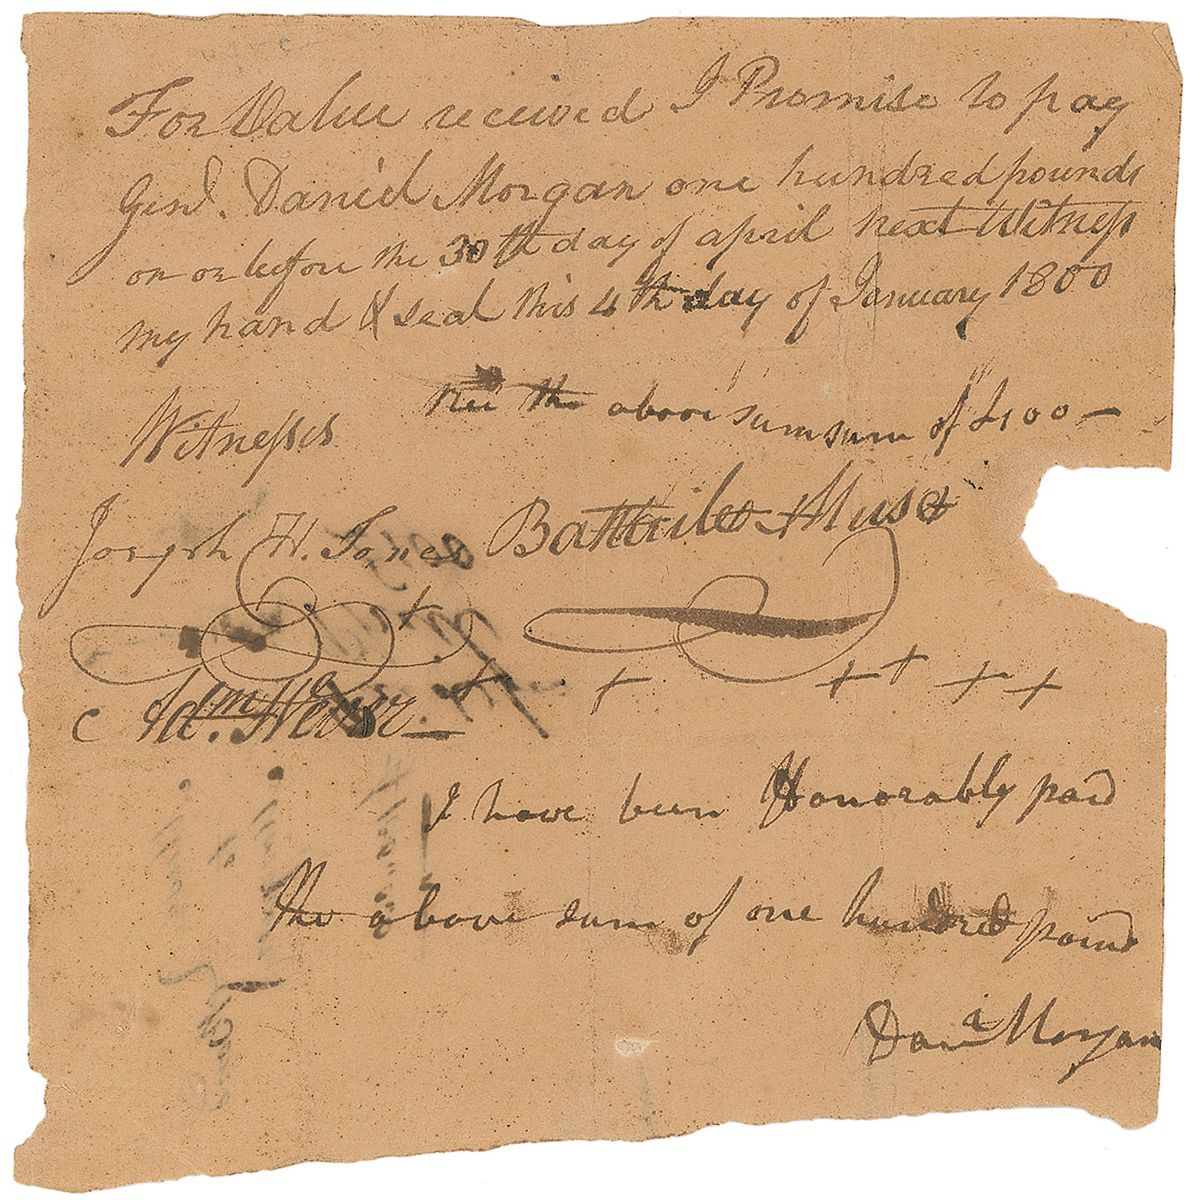 For Value received I Promise to pay
Genl. Daniel Morgan one hundred pounds
on or before the 30th day of april next Witness
my hand & seal this 4th day of January 1800
the above sum sum of £100 —
Witnesses
Joseph H. Jones Battaile Muse
I have been Honorably paid
the above sum of one hundred pound
Danl Morgan